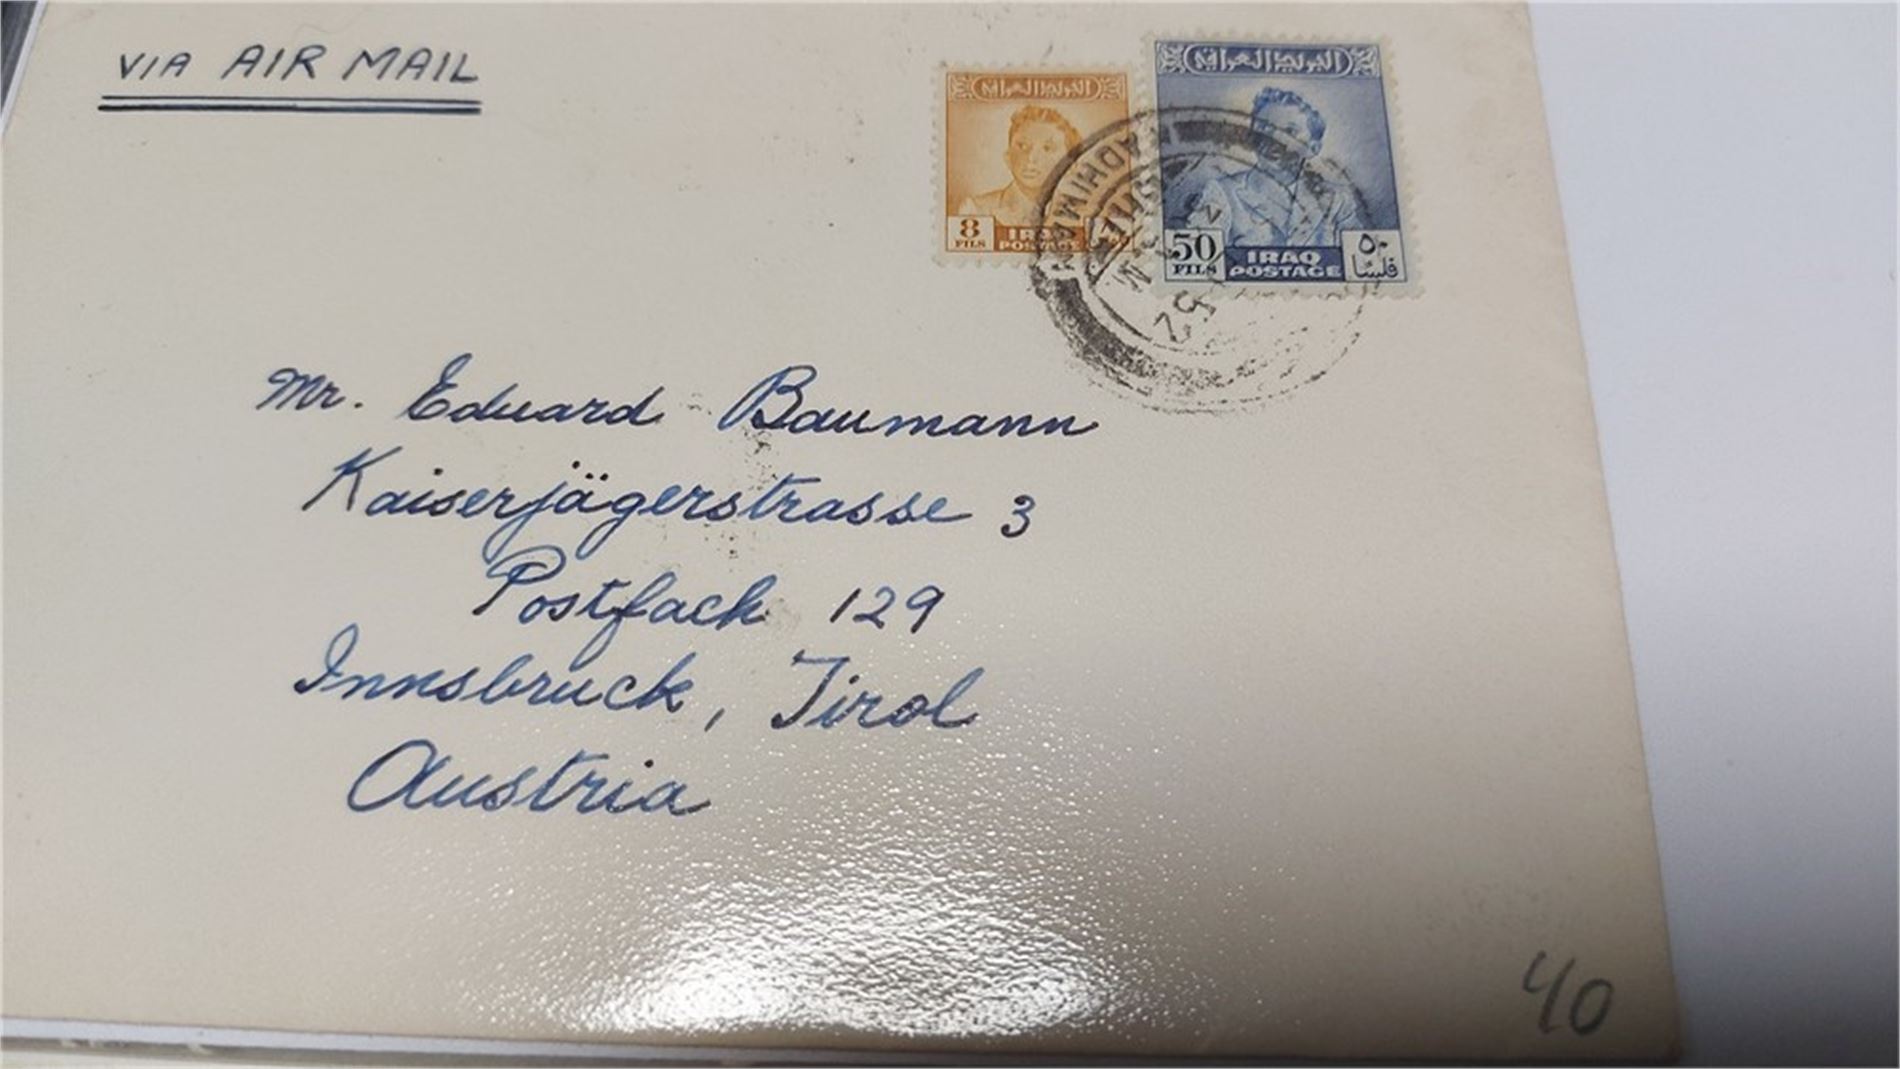 VIA AIR MAIL
البريد العراقي
8
FILS
IRAQ
POSTAGE
البريد العراقي
50
FILS
IRAQ
POSTAGE
٥٠
فلسا
ADHIMAH
52
Mr. Eduard Baumann
Kaiserjägerstrasse 3
Postfach 129
Innsbruck, Tirol
Austria
40